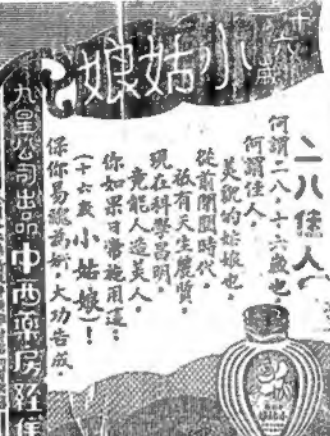 十六歲
小姑娘
二八佳人
何謂二八，十六歲也，
何謂佳人，
美貌的姑娘也，
從前閉關時代，
祗有天生麗質，
現在科學昌明，
竟能人造美人，
你如果日常施用這：
(十六歲小姑娘)！
保你易醜為妍，大功告成。
九星公司出品中西藥房經售